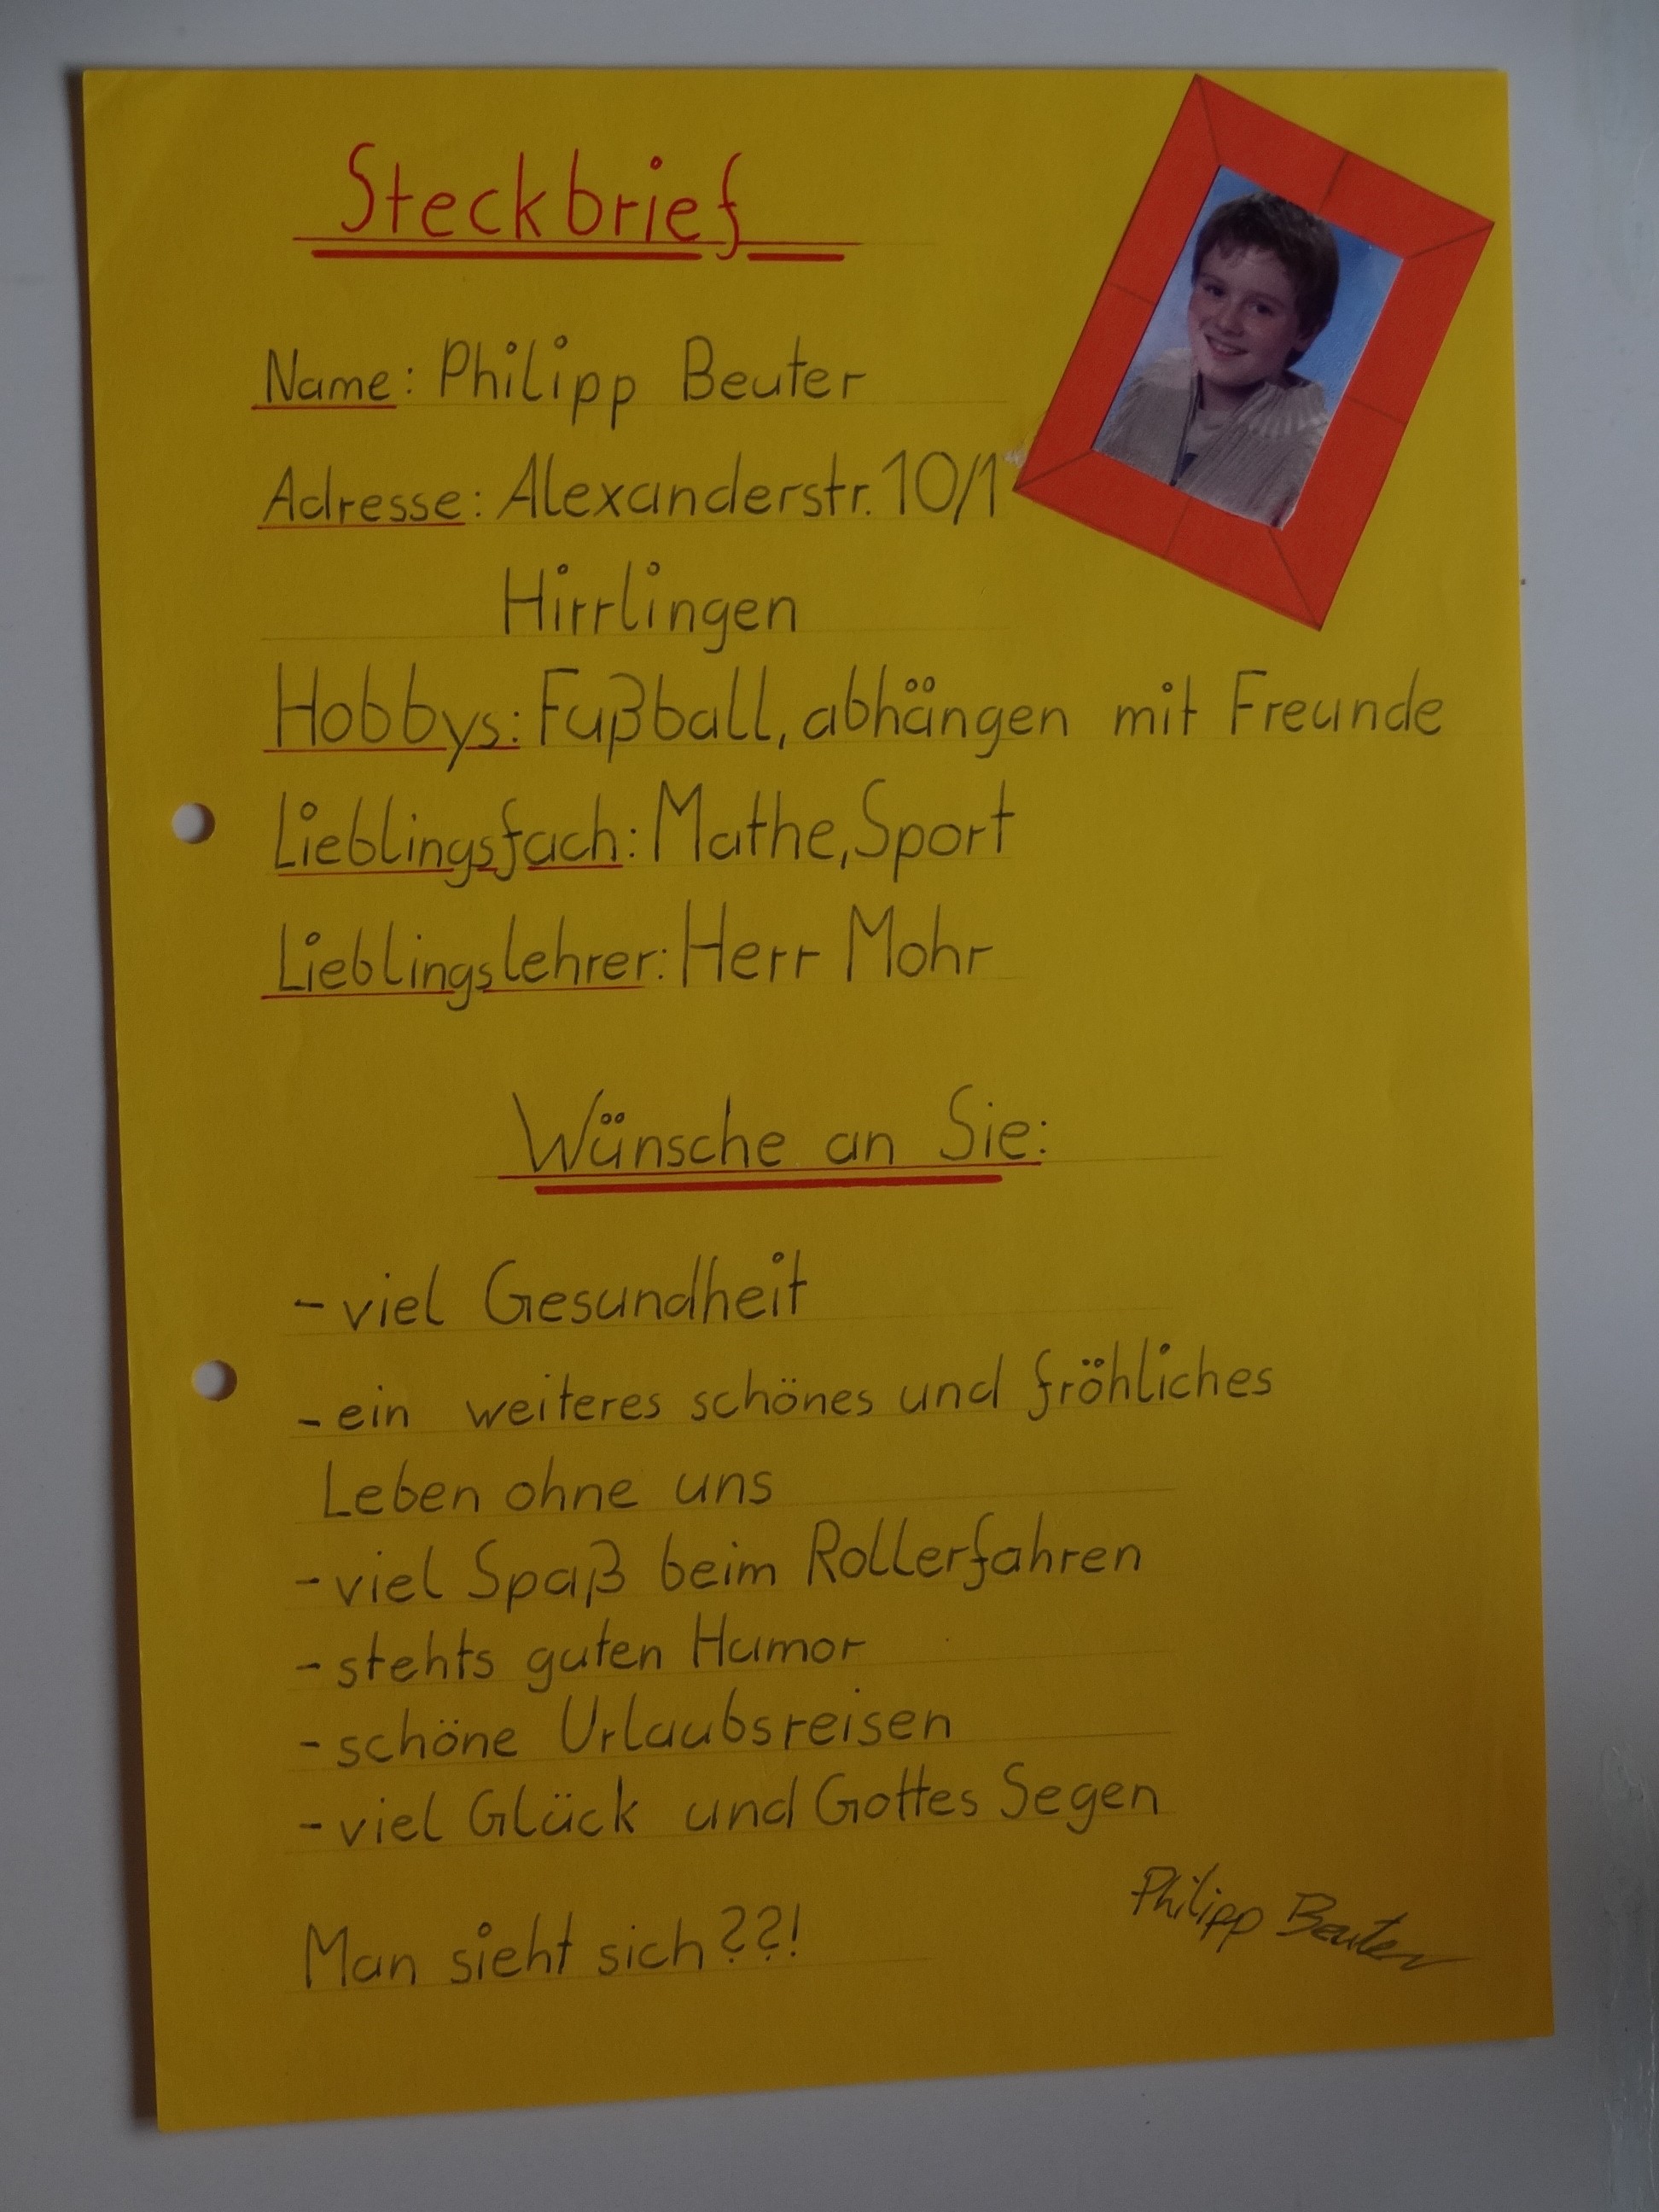 Steckbrief
Name: Philipp Beuter
Adresse: Alexanderstr. 10/1
Hirrlingen
Hobbys: Fußball, abhängen mit Freunde
Lieblingsfach: Mathe, Sport
Lieblingslehrer: Herr Mohr
Wünsche an Sie:
- viel Gesundheit
- ein weiteres schönes und fröhliches
Leben ohne uns
- viel Spaß beim Rollerfahren
- stehts guten Humor
- schöne Urlaubsreisen
- viel Glück und Gottes Segen
Man sieht sich??!
Philipp Beuter